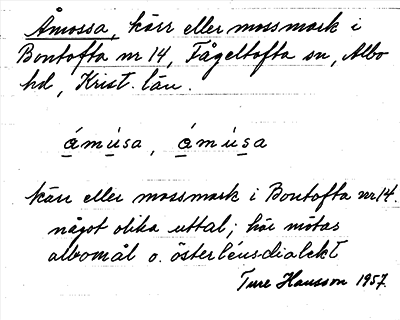 Åmossa, kärr eller mossmark i
Bontofta nr 14, Fågeltofta sn, Albo
hd, Krist. län.
ámúsa, ámúsa
kärr eller mossmark i Bontofta nr 14.
något olika uttal; här mötas
albomål o. österlensdialekt
Ture Hansson 1957.